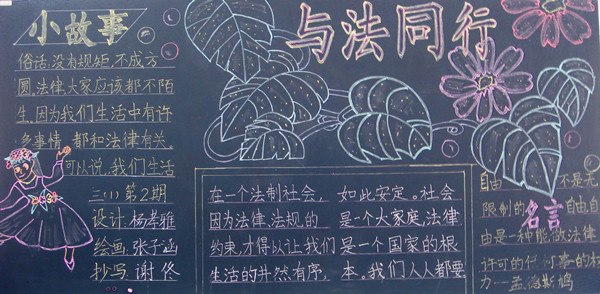 小故事
俗话:没有规矩,不成方
圆。法律,大家应该都不陌
生。因为我们生活中有许
多事情,都和法律有关。
可以说,我们生活
三(1)第2期
设计:杨孝雅
绘画:张子涵
抄写:谢佟
与法同行
在一个法制社会,
因为法律、法规的
约束,才得以让我们
生活的井然有序,
如此安定。社会
是一个大家庭,法律
是一个国家的根
本。我们人人都要
名言
自由 不是无
限制的 自由,自
由是一种能做法律
许可的任何事的权
力—孟德斯鸠